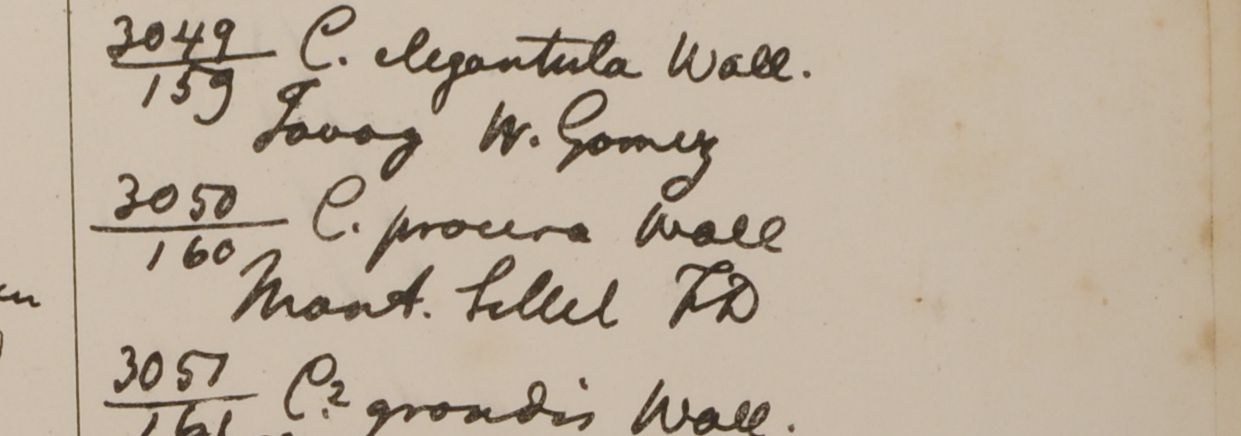 3049 C. elegantula Wall.
159
Tavoy W. Gomez
3050 C. procera Wall
160
Mont. Sillet FD
3051 C.? grandis Wall.
161